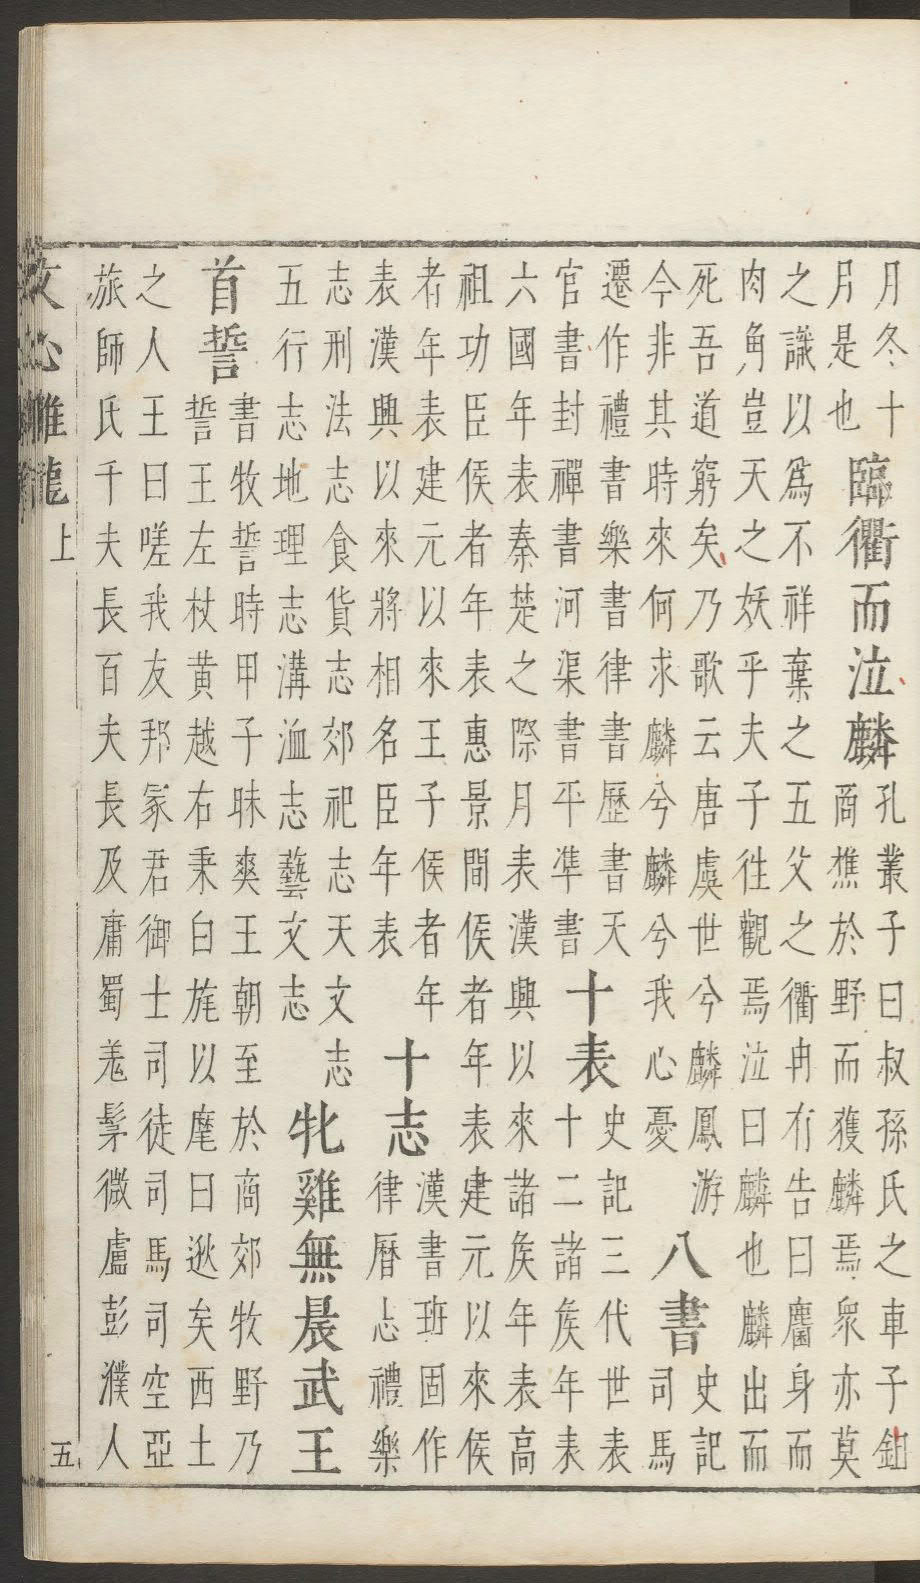 月冬十
月是也
臨衢而泣麟
孔叢子曰叔孫氏之車子鉏
商樵於野而獲麟焉衆亦莫
之識以爲不祥棄之五父之衢冉有告曰麕身而
肉角豈天之妖乎夫子往觀焉泣曰麟也麟出而
死吾道窮矣乃歌云唐虞世兮麟鳳游
今非其時來何求麟兮麟兮我心憂
八書
史記
司馬
遷作禮書樂書律書歷書天
官書封禪書河渠書平準書
十表
史記三代世表
十二諸矦年表
六國年表秦楚之際月表漢興以來諸矦年表高
祖功臣侯者年表惠景間侯者年表建元以來侯
者年表建元以來王子侯者年
表漢興以來將相名臣年表
十志
漢書班固作
律曆志禮樂
志刑法志食貨志郊祀志天文志
五行志地理志溝洫志藝文志
牝雞無晨武王
首誓
書牧誓時甲子昧爽王朝至於商郊牧野乃
誓王左杖黄越右秉白旄以麾曰逖矣西土
之人王曰嗟我友邦冢君御士司徒司馬司空亞
旅師氏千夫長百夫長及庸蜀羌髳微盧彭濮人
文心雕龍 上 五